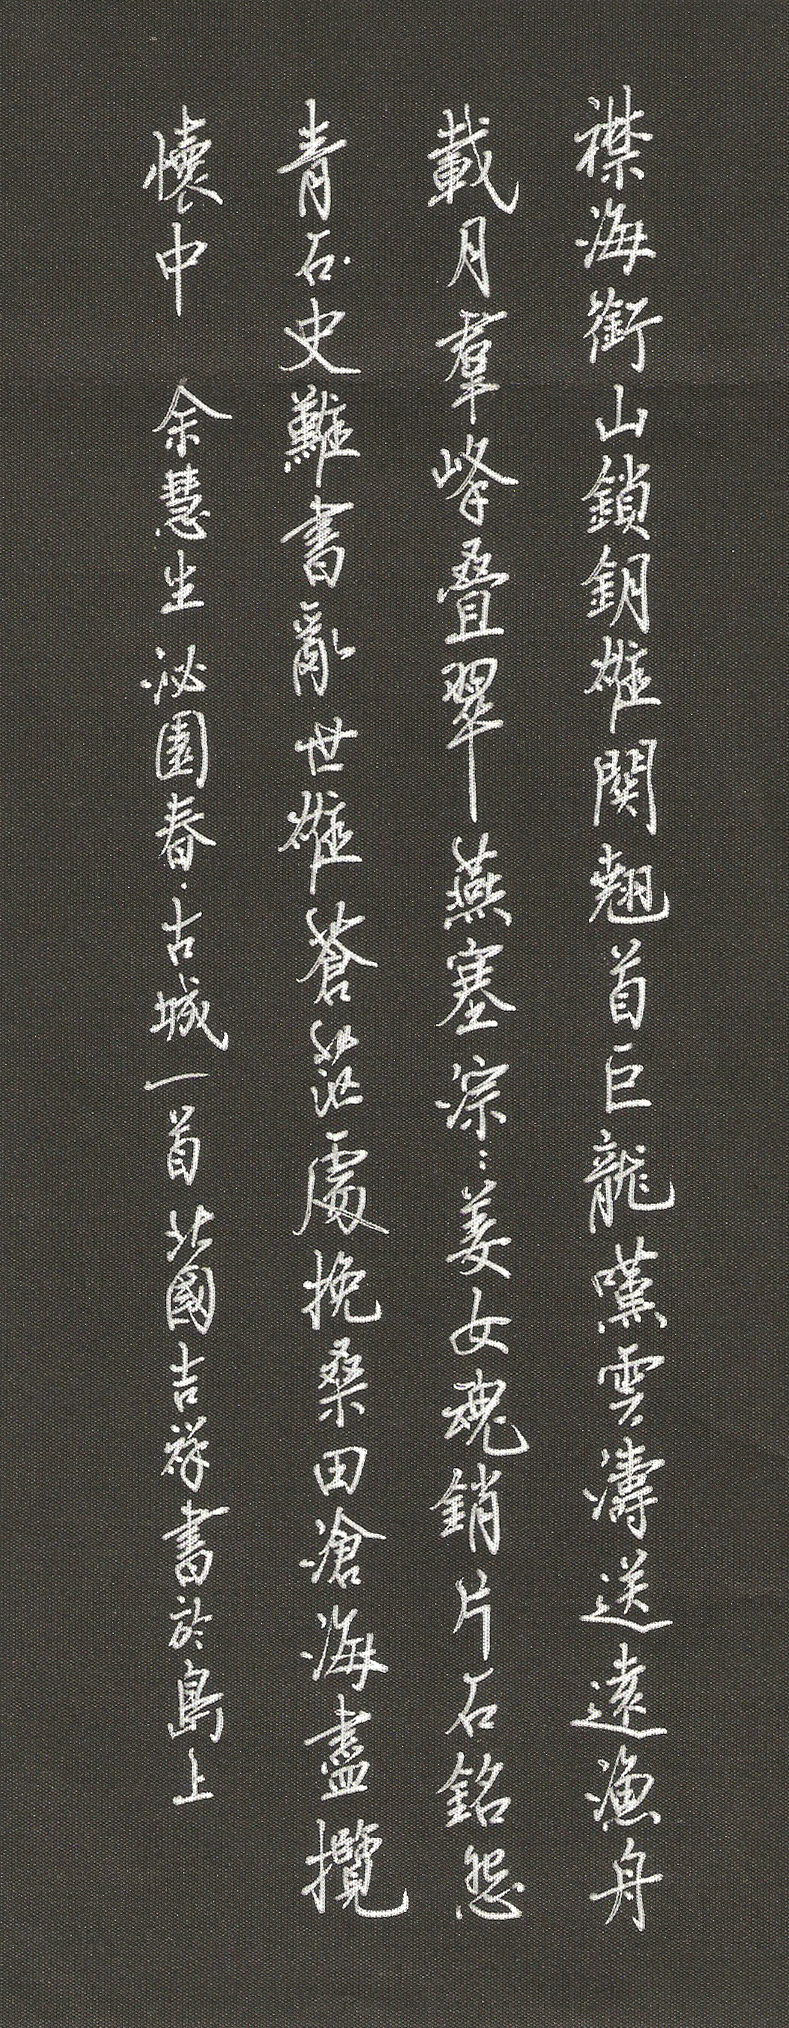 襟海銜山鎖鑰雄關翹首巨龍嘆雲濤送遠漁舟
載月羣峰疊翠燕塞淙⺀姜女魂銷片石銘怨
青石史難書亂世雄蒼茫處挽桑田滄海盡攬
懷中 余慧生 泌園春·古城一首 北國吉祥書於島上